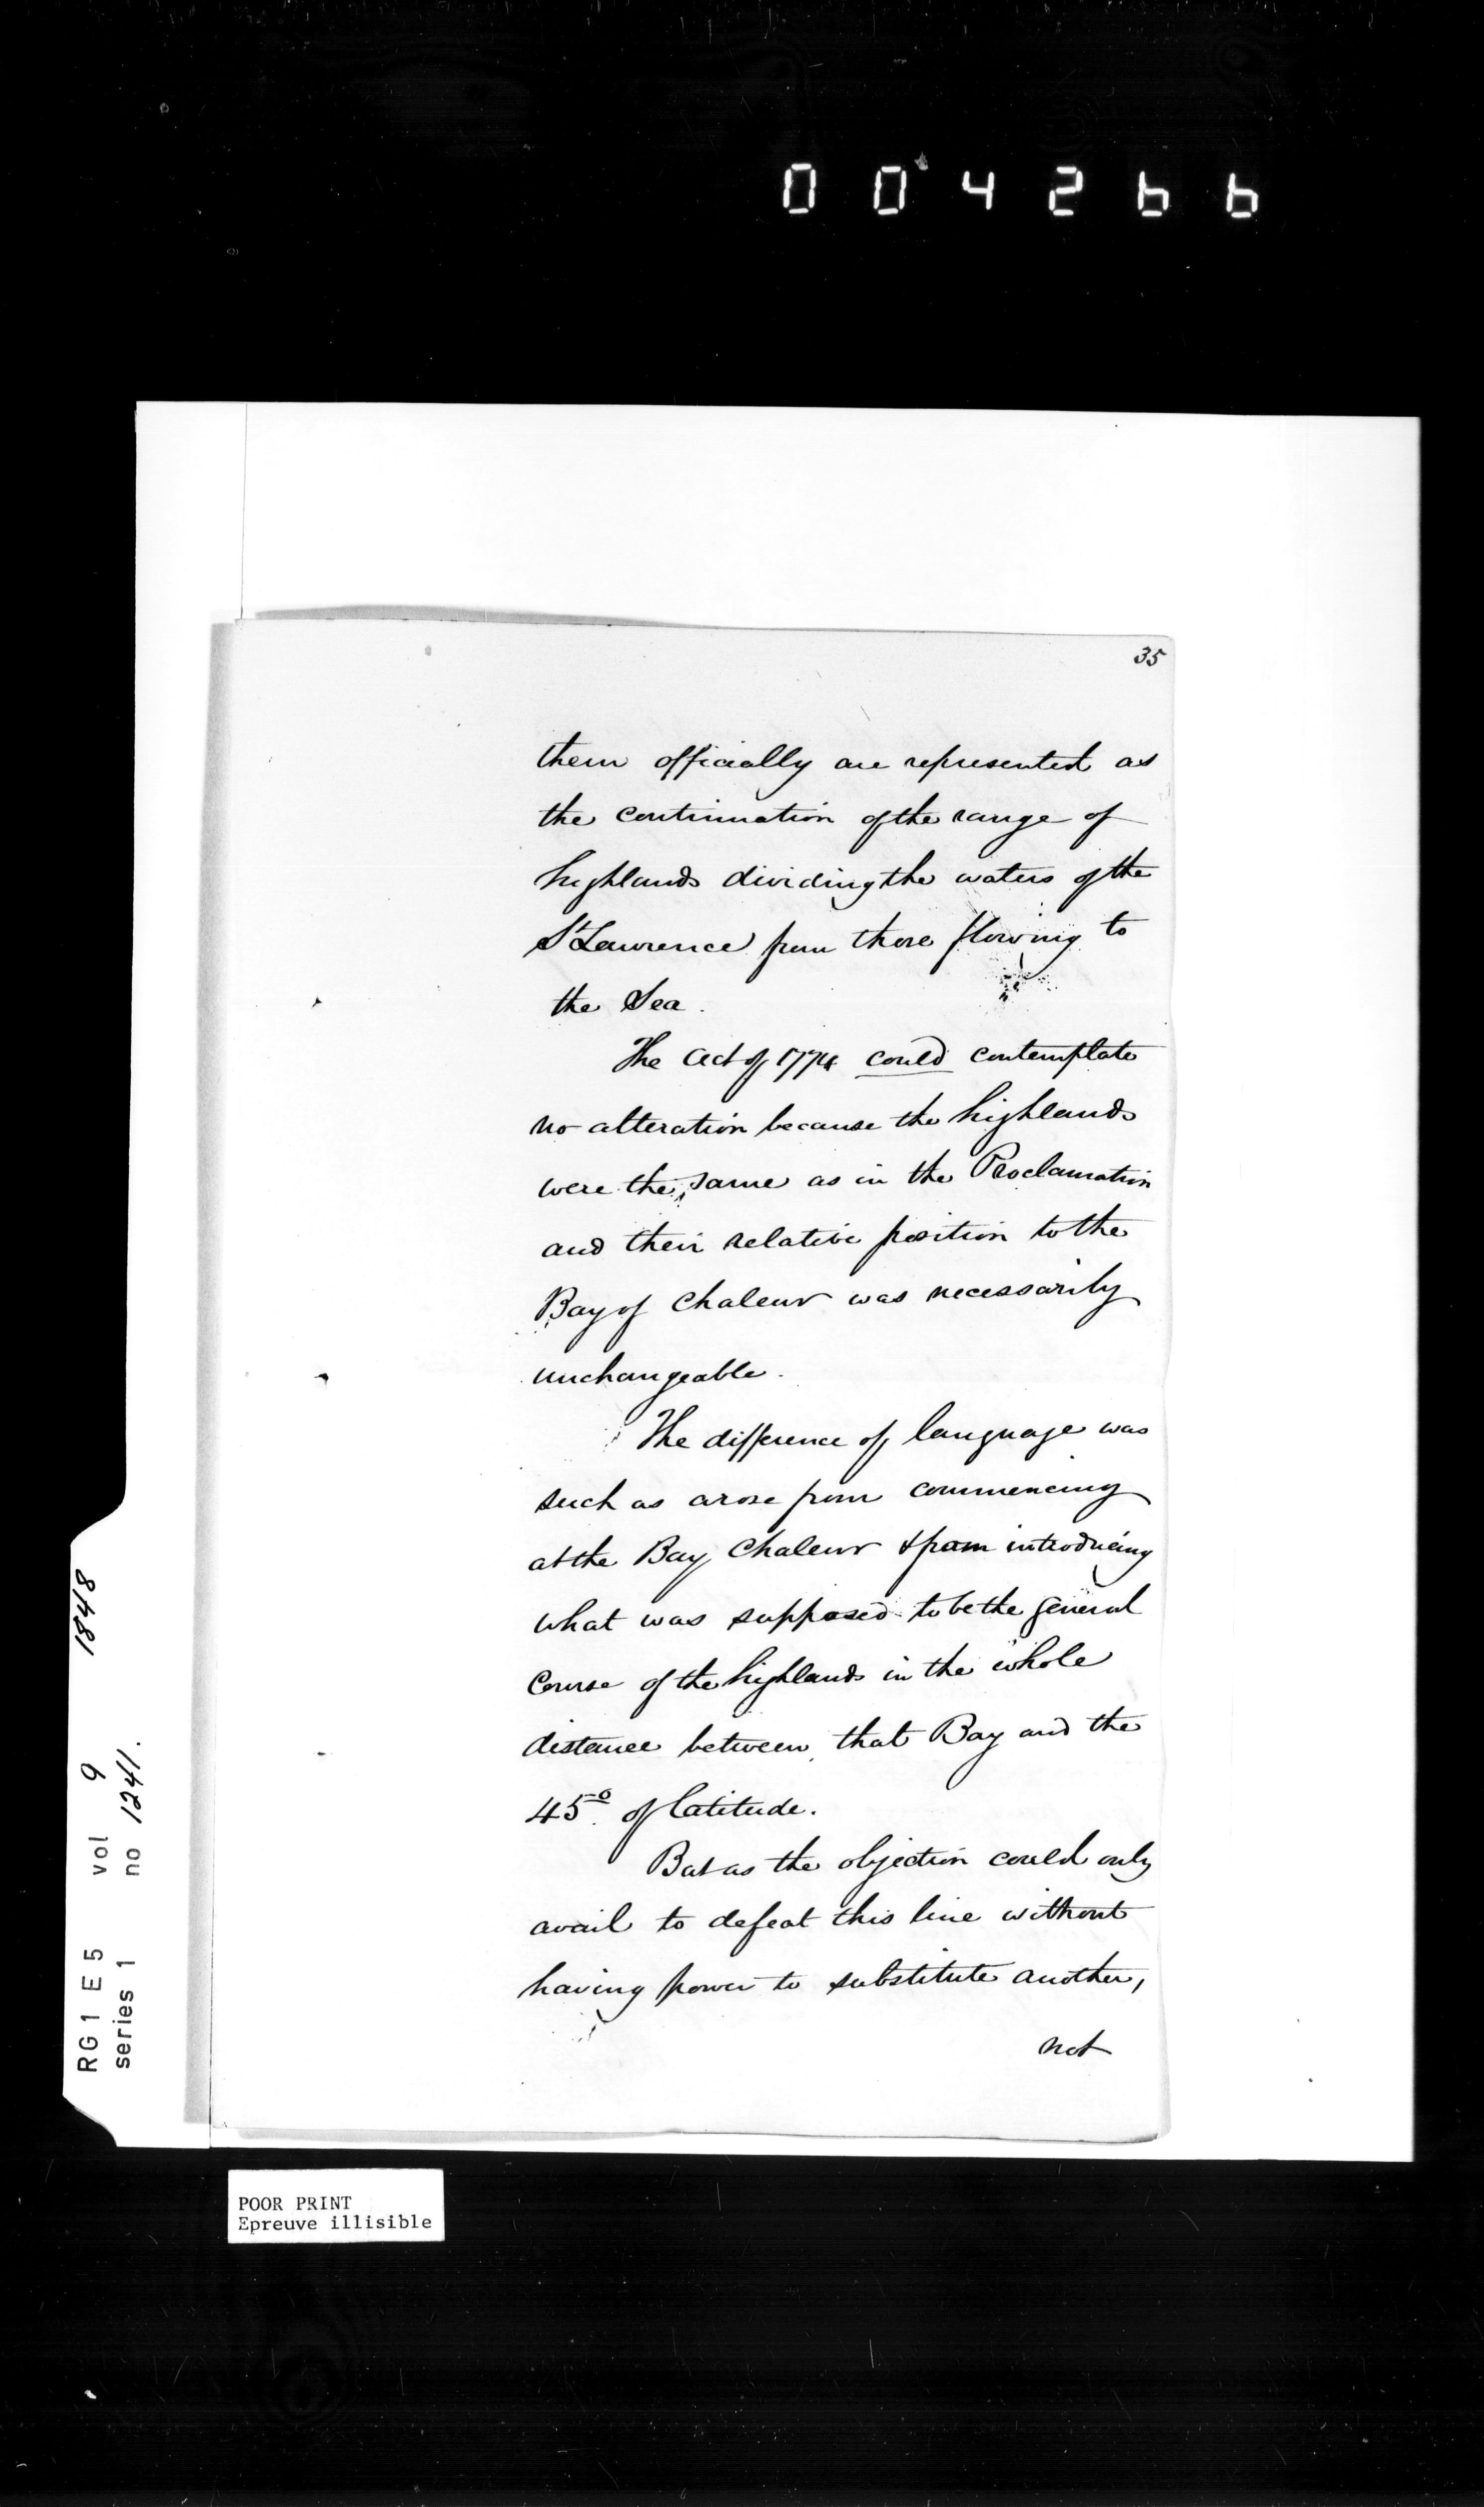 004266
35
them officially are represented as
the continuation of the range of
highlands dividing the waters of the
St Lawrence from those flowing to
the Sea.
The Act of 1774 could contemplate
no alteration because the highlands
were the same as in the Proclamation
and their relative position to the
Bay of Chaleur was necessarily
unchangeable.
The difference of language was
such as arose from commencing
at the Bay Chaleur & from introducing
what was supposed to be the general
Course of the highlands in the whole
distance between that Bay and the
45º of latitude.
But as the objection could only
avail to defeat this line without
having power to substitute another,
not
RG1 E5 vol 9 1848
series 1 no 1241.
POOR PRINT
Epreuve illisible